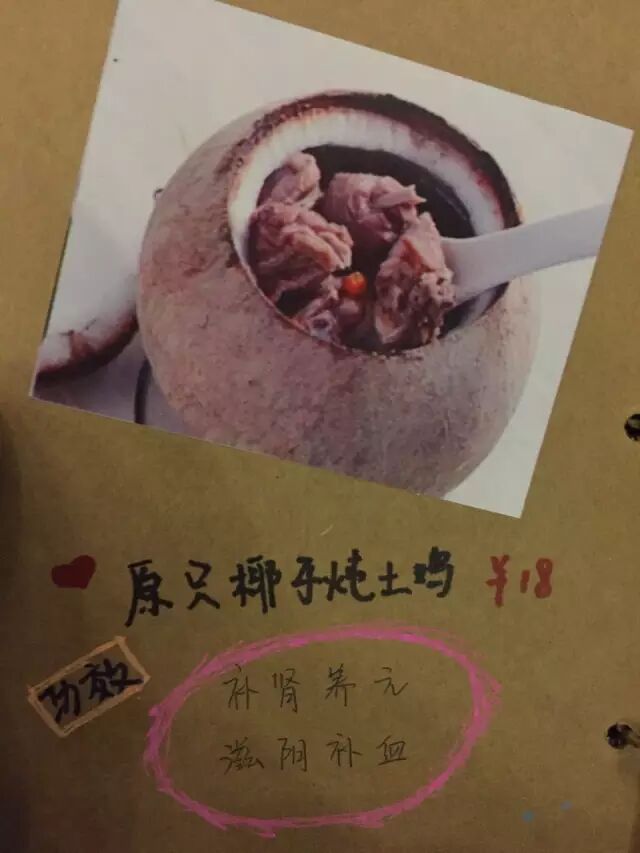 原只椰子炖土鸡 ¥18
功效
补肾养元
滋阴补血